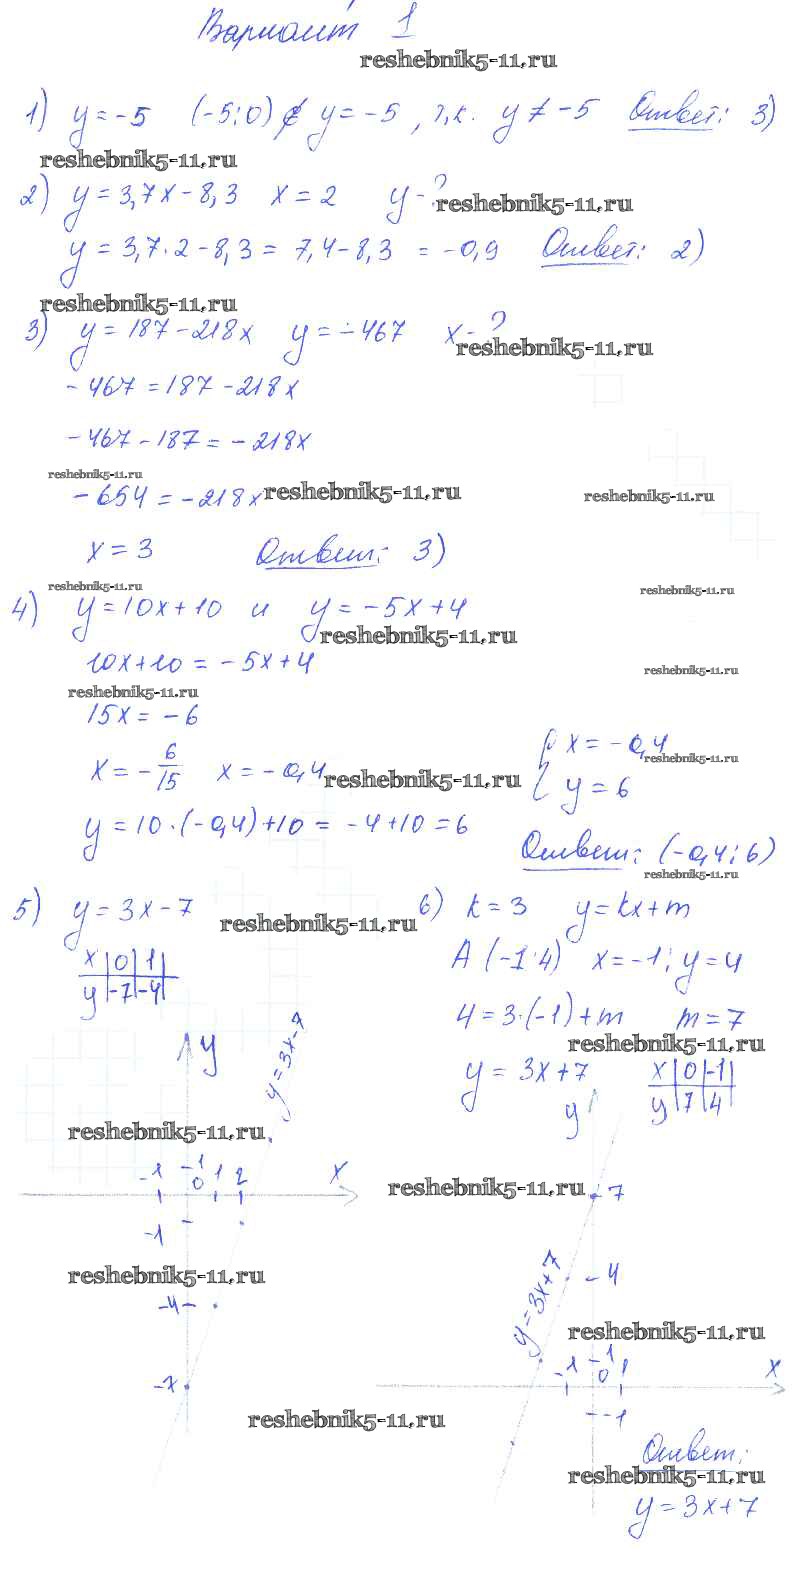 Вариант 1
reshebnik5-11.ru
1) y = -5 (-5; 0) ∉ y = -5, т.к. y ≠ -5 Ответ: 3)
reshebnik5-11.ru
2) y = 3,7x - 8,3 x = 2 y - ?
reshebnik5-11.ru
y = 3,7 · 2 - 8,3 = 7,4 - 8,3 = -0,9 Ответ: 2)
reshebnik5-11.ru
3) y = 187 - 218x y = -467 x - ?
reshebnik5-11.ru
-467 = 187 - 218x
-467 - 187 = -218x
reshebnik5-11.ru
-654 = -218x
reshebnik5-11.ru
reshebnik5-11.ru
x = 3 Ответ: 3)
reshebnik5-11.ru
reshebnik5-11.ru
4) y = 10x + 10 и y = -5x + 4
reshebnik5-11.ru
10x + 10 = -5x + 4
reshebnik5-11.ru
reshebnik5-11.ru
15x = -6
x = -6/15 x = -0,4
{ x = -0,4
y = 6
reshebnik5-11.ru
reshebnik5-11.ru
y = 10 · (-0,4) + 10 = -4 + 10 = 6
Ответ: (-0,4; 6)
reshebnik5-11.ru
5) y = 3x - 7
reshebnik5-11.ru
x | 0 | 1
y | -7 | -4
y
y = 3x - 7
reshebnik5-11.ru
-1 -1 0 1 2 x
-1
reshebnik5-11.ru
-4
-7
reshebnik5-11.ru
6) k = 3 y = kx + m
A (-1; 4) x = -1; y = 4
4 = 3 · (-1) + m m = 7
reshebnik5-11.ru
y = 3x + 7
x | 0 | -1
y | 7 | 4
y
reshebnik5-11.ru
7
4
y = 3x + 7
reshebnik5-11.ru
-1 -1 0 1 x
-1
Ответ:
reshebnik5-11.ru
y = 3x + 7